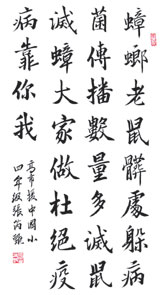 蟑螂老鼠髒處躲病
菌傳播數量多滅鼠
滅蟑大家做杜絕疫
病靠你我
高市援中國小
四年級張芮